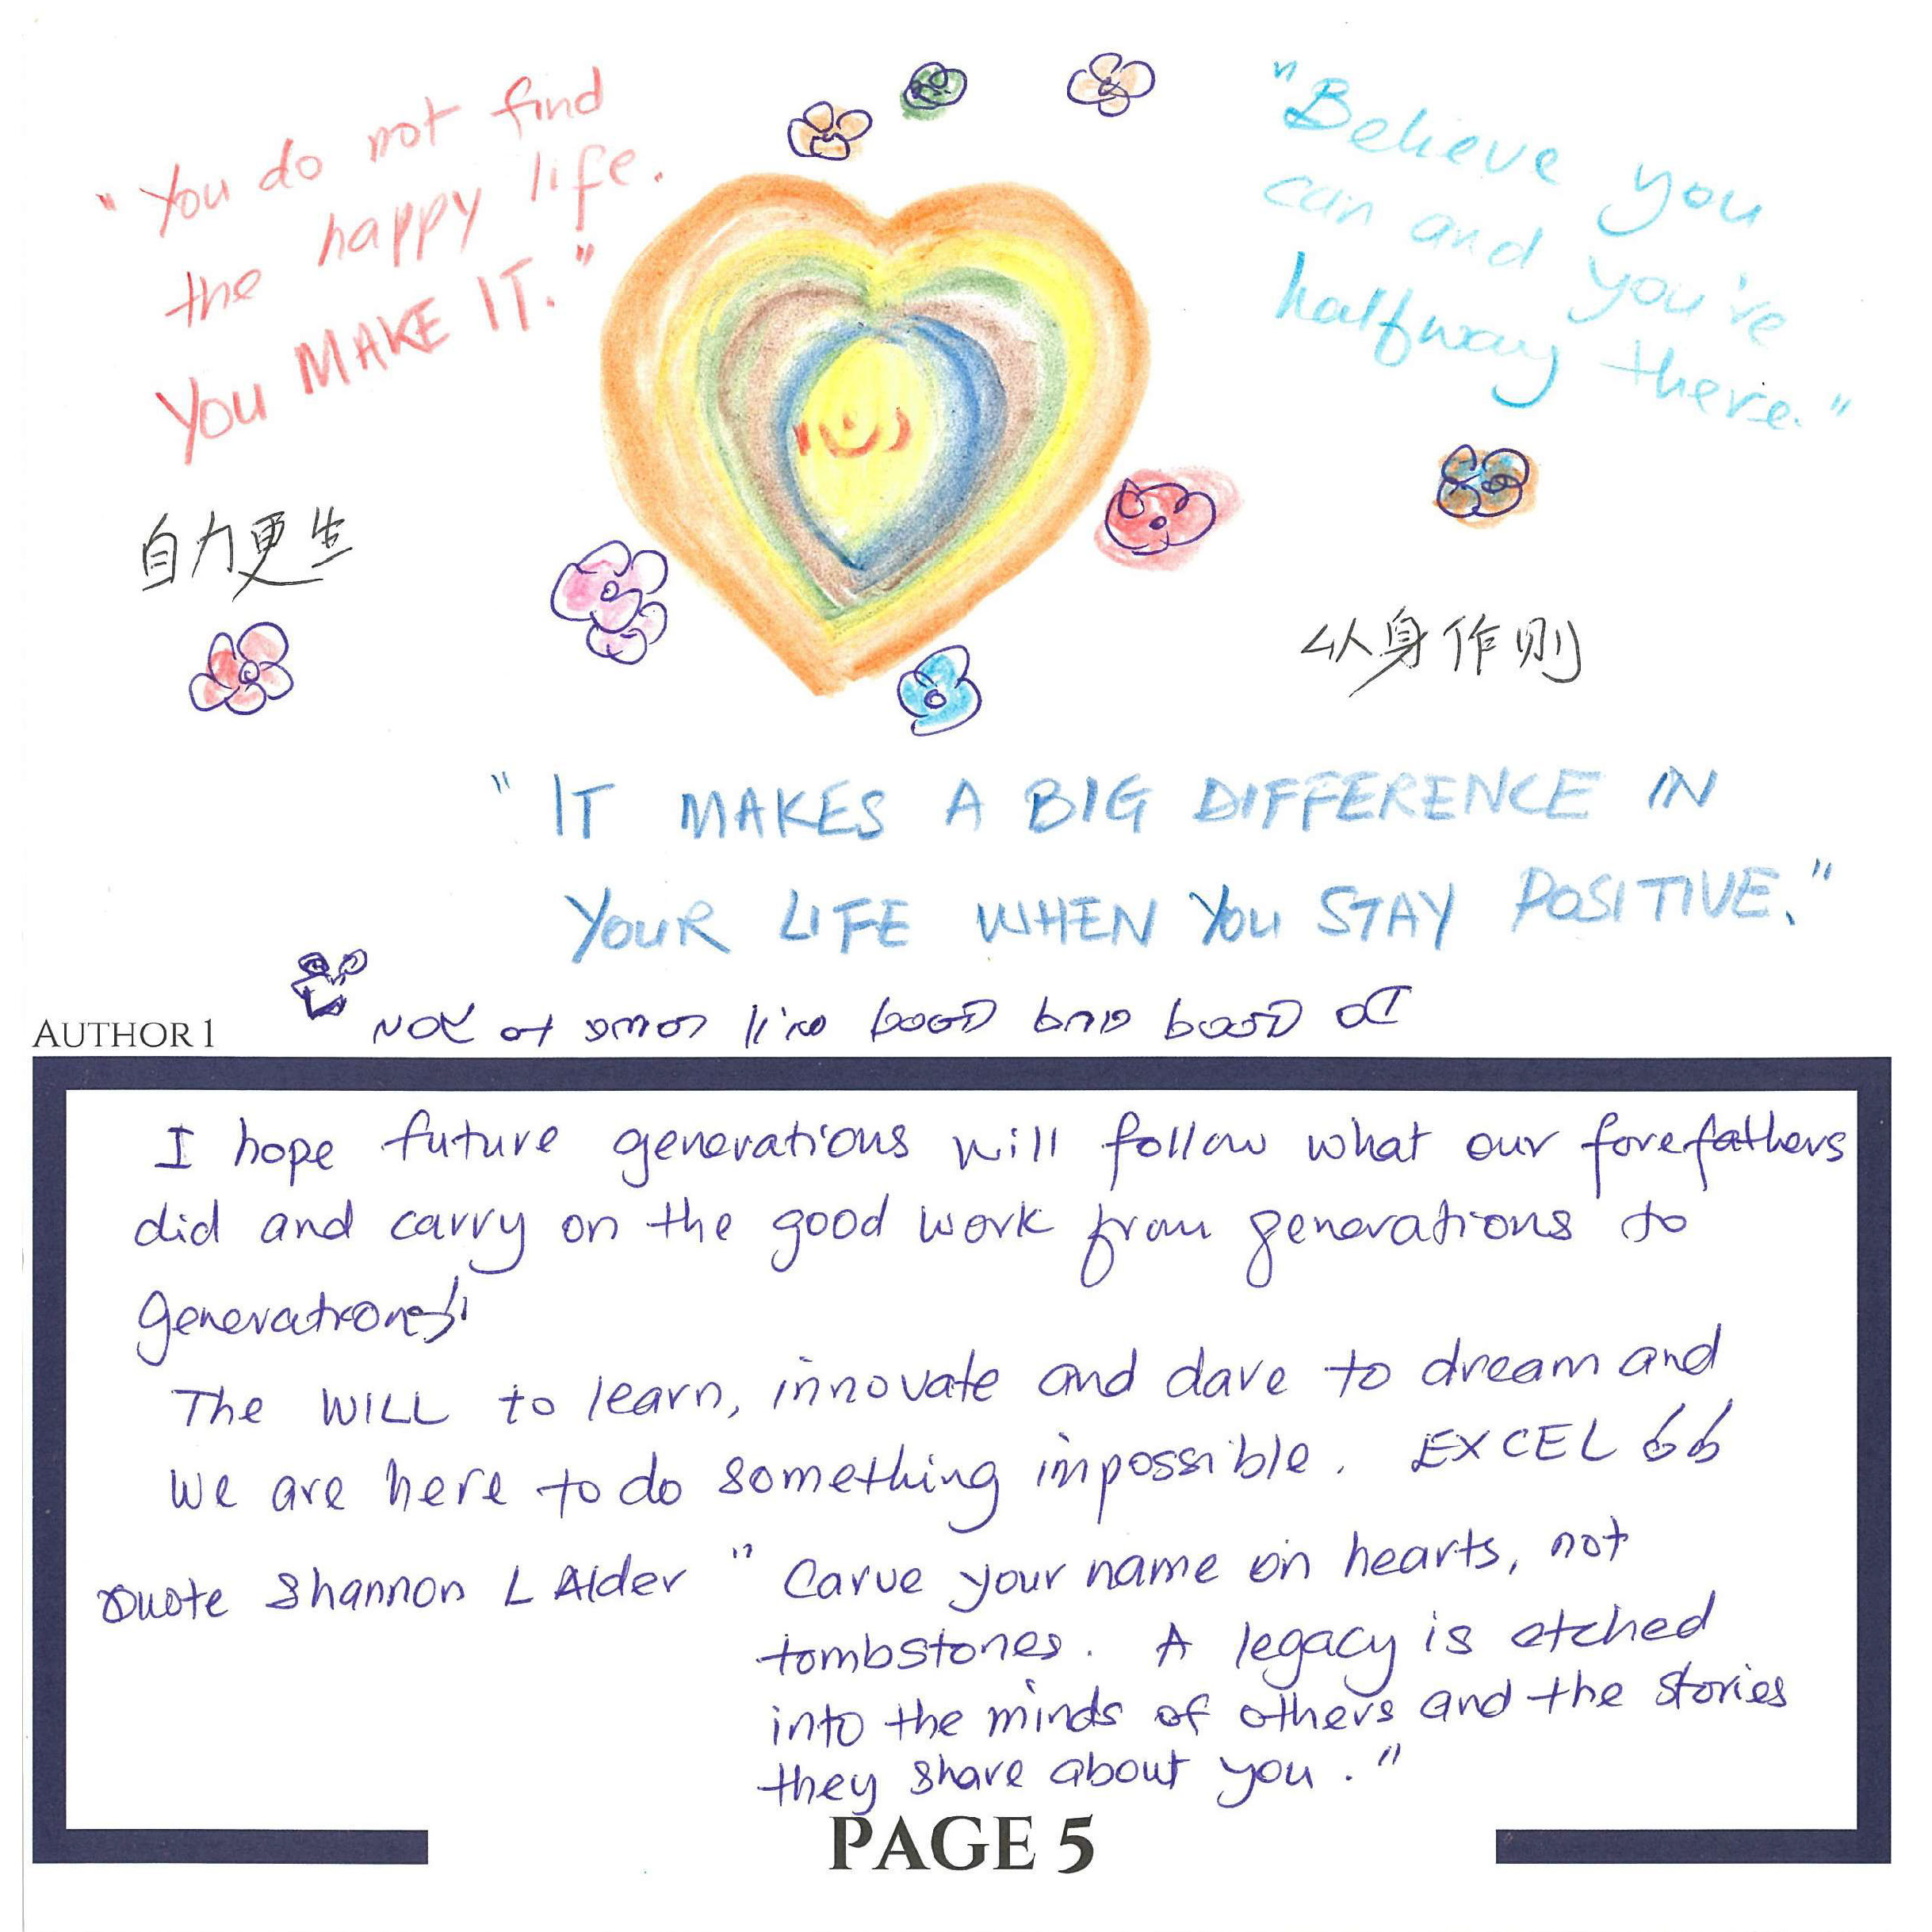 "You do not find
the happy life.
You MAKE IT."
"Believe you
can and you've
halfway there."
自力更生
以身作则
"IT MAKES A BIG DIFFERENCE IN
YOUR LIFE WHEN YOU STAY POSITIVE."
Do Good and Good will come to YOU
AUTHOR 1
I hope future generations will follow what our forefathers
did and carry on the good work from generations to
generations!
The WILL to learn, innovate and dare to dream and
We are here to do something impossible. EXCEL
Quote Shannon L Alder "Carve your name on hearts, not
tombstones. A legacy is etched
into the minds of others and the stories
they share about you."
PAGE 5